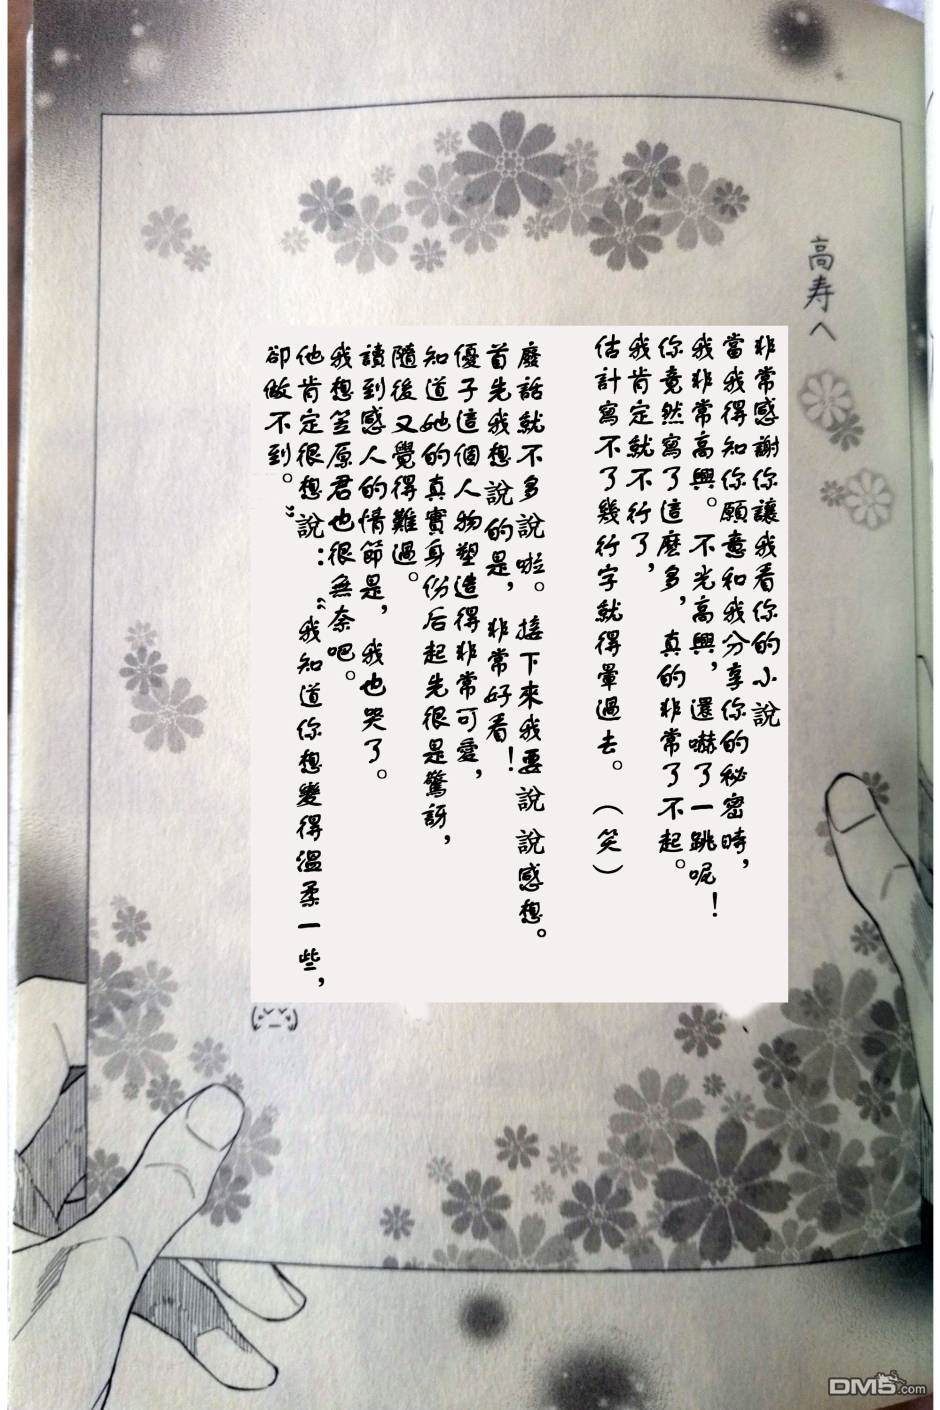 高寿へ
非常感謝你讓我看你的小說
當我得知你願意和我分享你的秘密時，
我非常高興。不光高興，還嚇了一跳呢！
你竟然寫了這麼多，真的非常了不起。
我肯定就不行了，
估計寫不了幾行字就得暈過去。（笑）
廢話就不多說啦。接下來我要說說感想。
首先我想說的是，非常好看！
優子這個人物塑造得非常可愛，
知道她的真實身份后起先很是驚訝，
隨後又覺得難過。
讀到感人的情節是，我也哭了。
我想笠原君也很無奈吧。
他肯定很想說：“我知道你想變得溫柔一些，
卻做不到。”
DM5.com